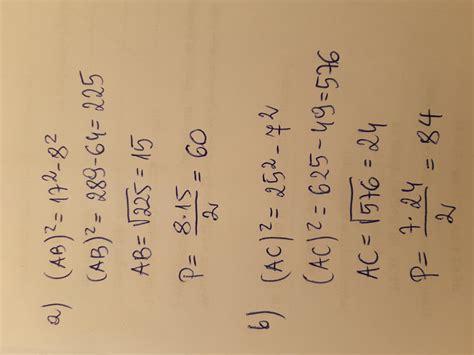 a) (AB)² = 17² - 8²
(AB)² = 289 - 64 = 225
AB = √225 = 15
P = 8·15/2 = 60
b) (AC)² = 25² - 7²
(AC)² = 625 - 49 = 576
AC = √576 = 24
P = 7·24/2 = 84